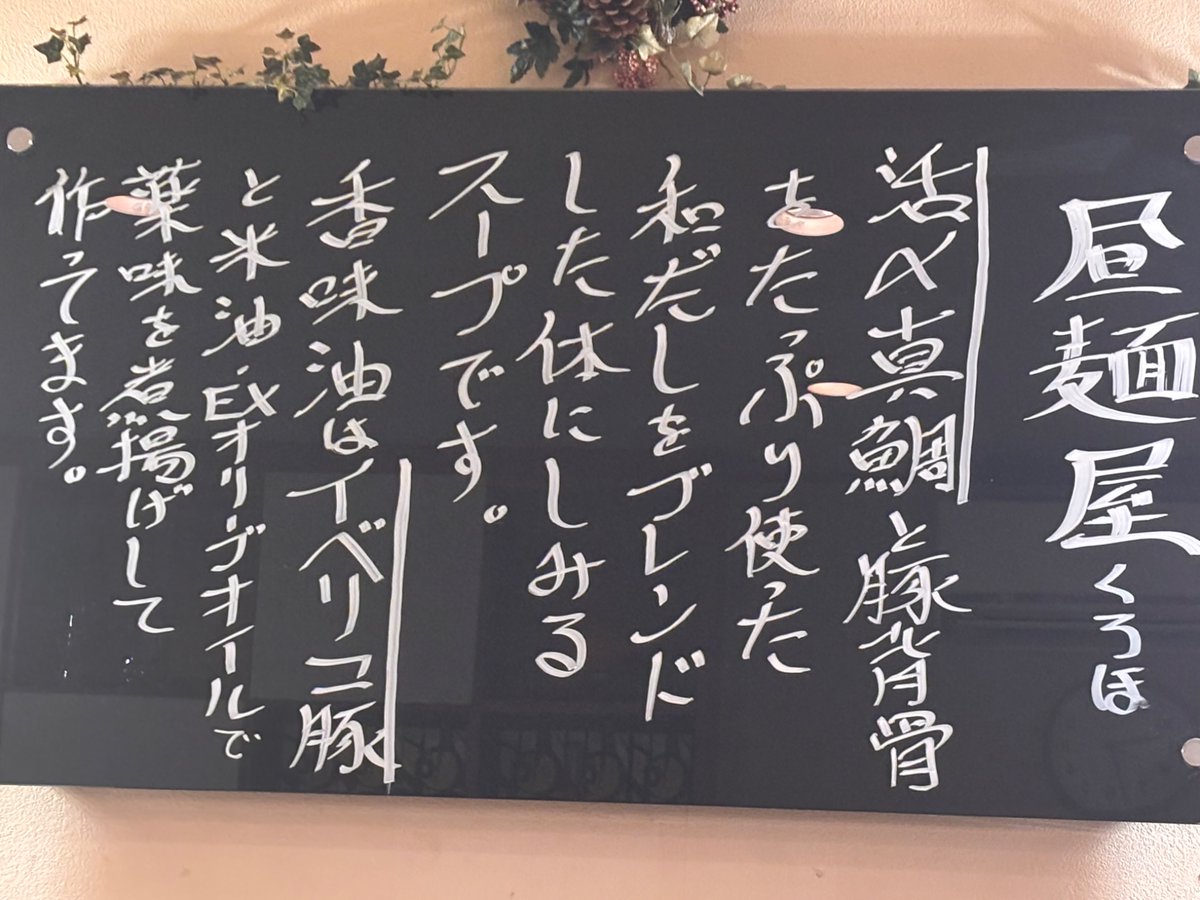 昼麺屋くろほ
活〆真鯛と豚背骨
をたっぷり使った
和だしをブレンド
した体にしみる
スープです。
香味油はイベリコ豚
と米油・EXオリーブオイルで
薬味を岩揚げして
作ってます。